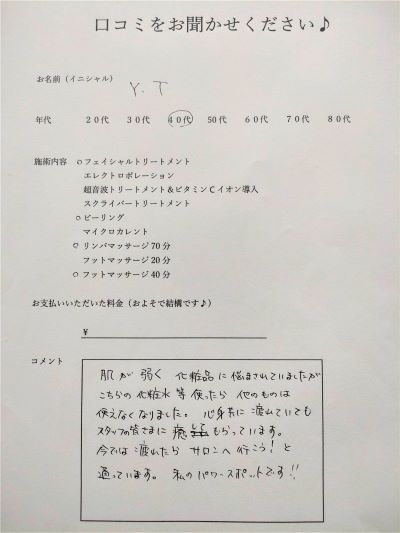 口コミをお聞かせください♪
お名前(イニシャル)
Y.T
年代 20代 30代 40代 50代 60代 70代 80代
施術内容 ○フェイシャルトリートメント
エレクトロポレーション
超音波トリートメント&ビタミンCイオン導入
スクライバートリートメント
○ピーリング
マイクロカレント
○リンパマッサージ70分
フットマッサージ20分
○フットマッサージ40分
お支払いいただいた料金(およそで結構です♪)
¥
コメント
肌が弱く 化粧品に悩まされていましたが
こちらの化粧水等使ったら 他のものは
使えなくなりました。 心身共に疲れていても
スタッフの皆さまに癒してもらっています。
今では疲れたら サロンへ行こう!と
通っています。 私のパワースポットです!!